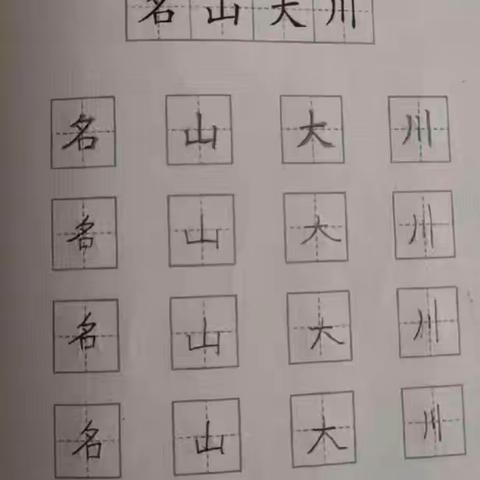 名山大川
名 山 大 川
名 山 大 川
名 山 大 川
名 山 大 川